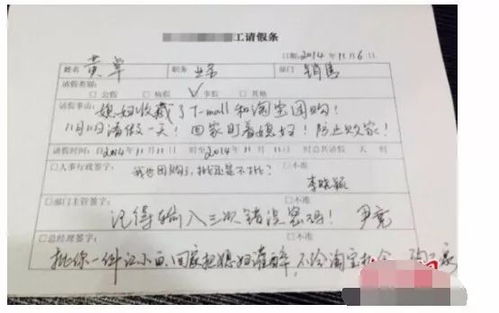 工请假条
日期:2014年11月6日
姓名 黄 职务 业务 部门 销售
请假类别: 公假 病假 √事假 其他
请假事由: 媳妇收藏了T-mall和淘宝团购!
11月11日请假一天!回家盯着媳妇!防止败家!
请假时间: 自2014年11月11日 时至2014年11月11日 时总共请假 天 时
人事行政签字: 我也团购了,批还是不批? 不准
李晓颖
部门主管签字: 不准
记得输入三次错误密码! 尹亮
总经理签字: 不准
批你一件江小白,回家把媳妇灌醉,不给淘宝机会